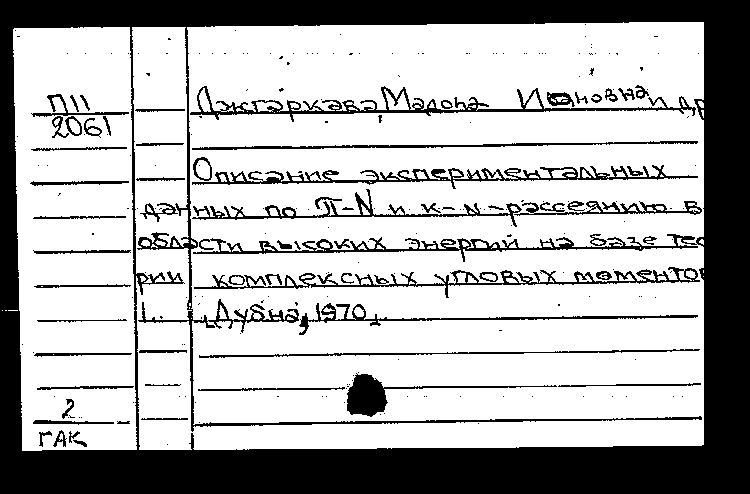 П11
2061
Джгаркава, Мадона Ивановна и др
Описание экспериментальных
данных по π-N и к-N-рассеянию в
области высоких энергий на базе тео
рии комплексных угловых моментов
1. Дубна, 1970.
2
ГАК